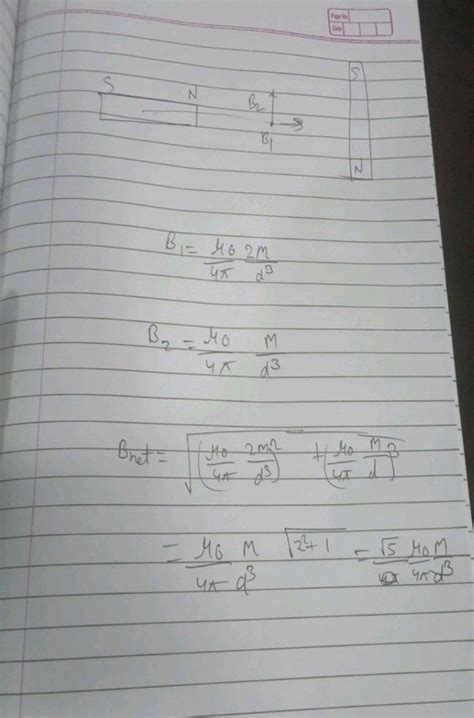 Page No.
Date
S N B₂ S
B₁
N
B₁ = μ₀/4π 2M/d³
B₂ = μ₀/4π M/d³
Bnet = √((μ₀/4π 2M/d³)² + (μ₀/4π M/d)³
= μ₀/4π M/d³ √2²+1 = √5 μ₀M/4πd³